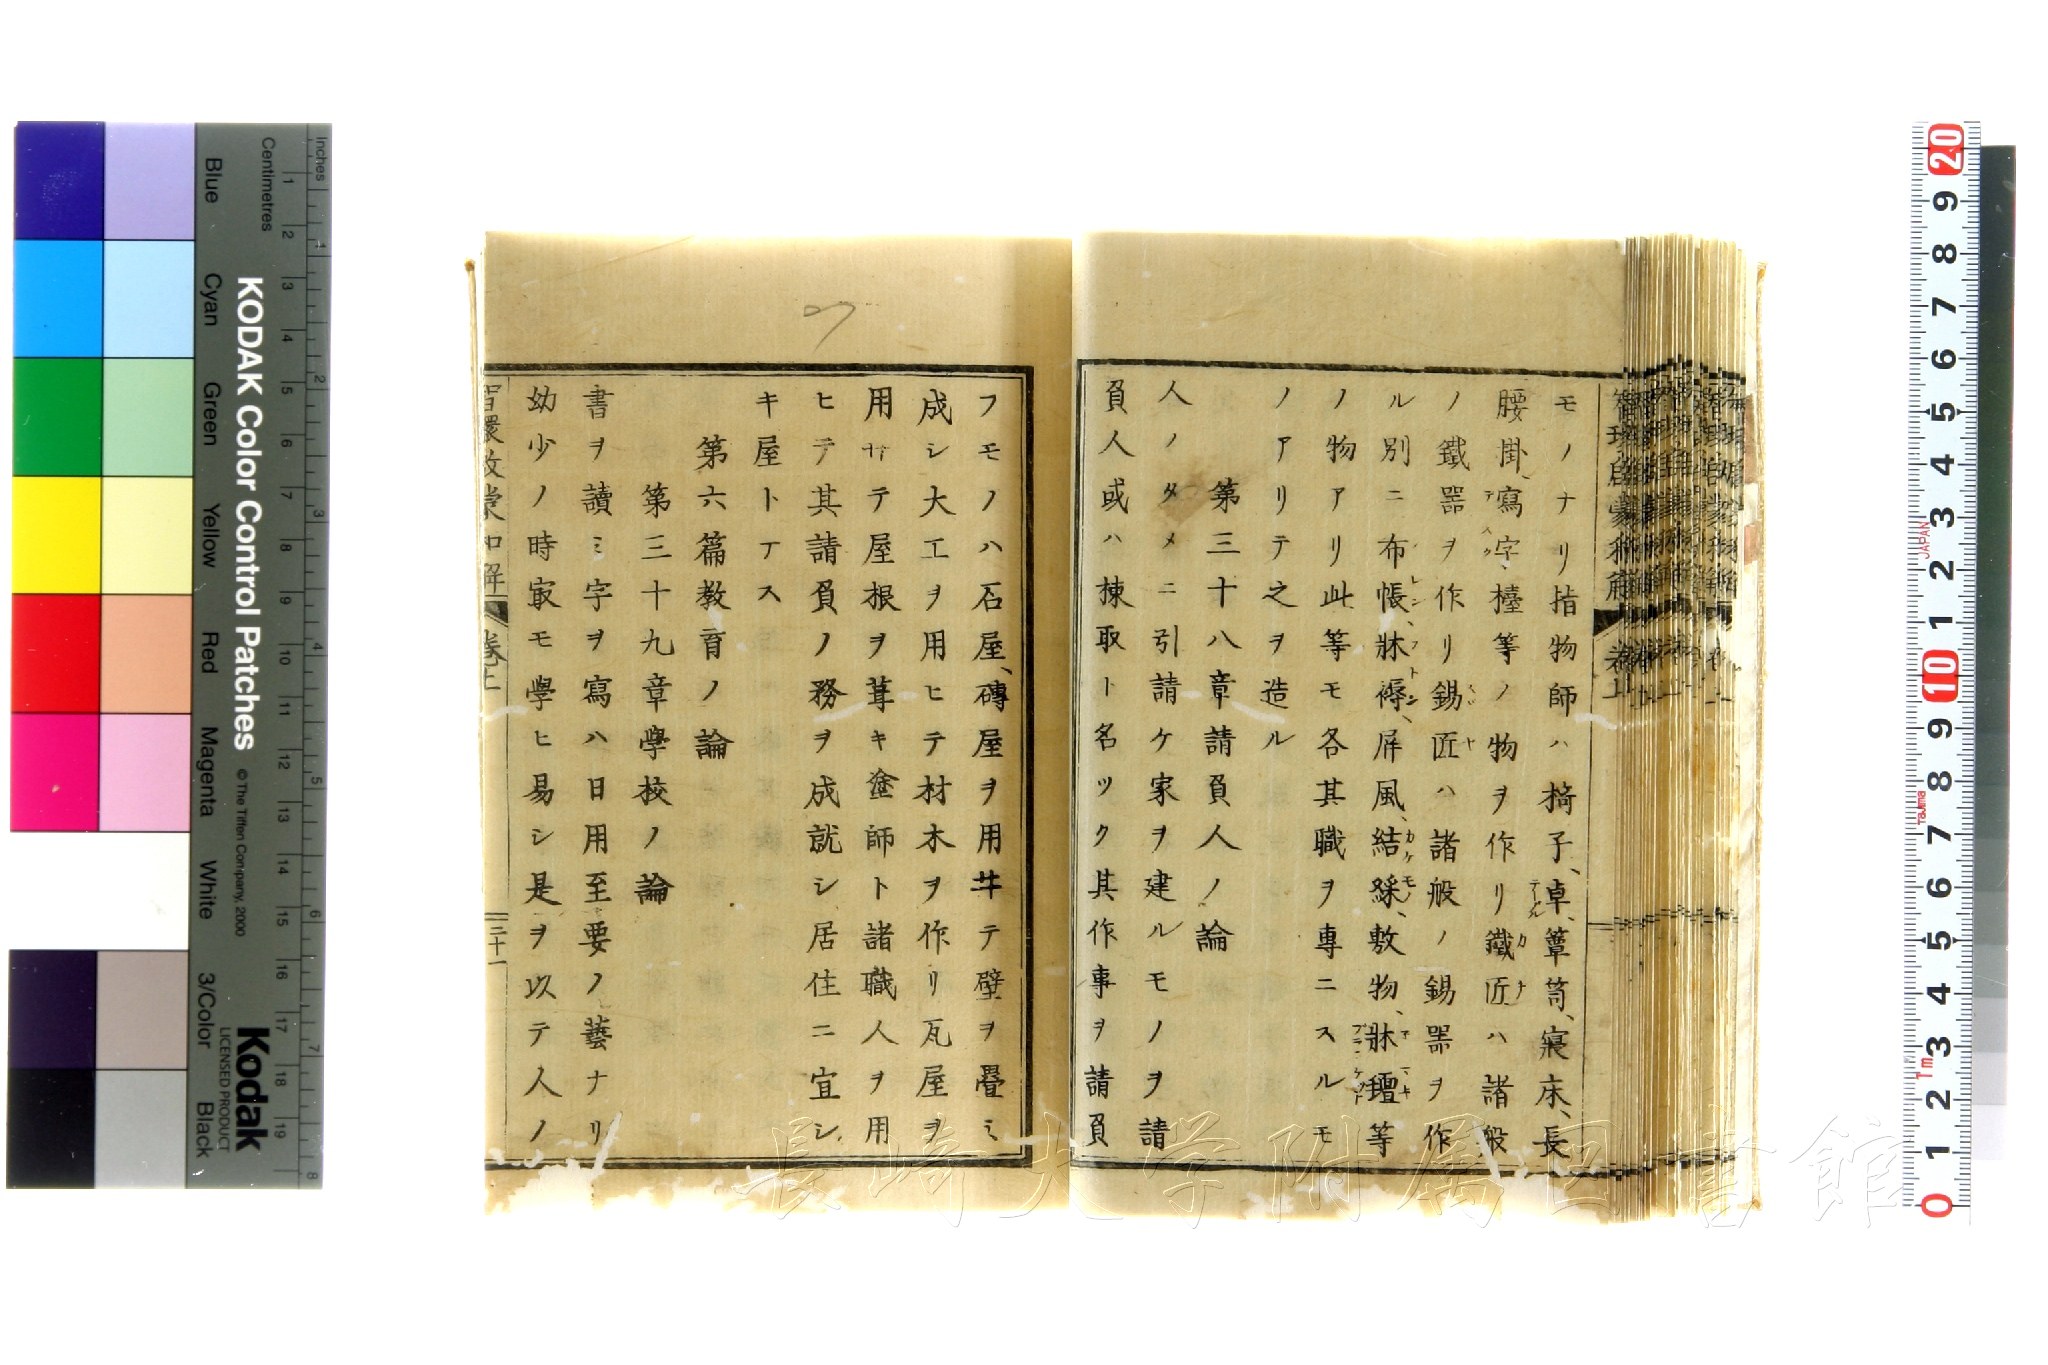 モノナリ指物師ハ椅子、卓、簟笥、寢床、長
腰掛、寫字、檯等ノ物ヲ作リ鐵匠ハ諸般
ノ鐵器ヲ作リ錫匠ハ諸般ノ錫器ヲ作
ル別ニ布帳、牀褥、屏風、結綵、敷物、牀壇等
ノ物アリ此等モ各其職ヲ專ニスルモ
ノアリテ之ヲ造ル
第三十八章請負人ノ論
人ノタメニ引請ケ家ヲ建ルモノヲ請
負人或ハ揀取ト名ツク其作事ヲ請負
フモノハ石屋、磚屋ヲ用ヰテ壁ヲ疊ミ
成シ大工ヲ用ヒテ材木ヲ作リ瓦屋ヲ
用サテ屋根ヲ葺キ塗師ト諸職人ヲ用
ヒテ其請負ノ務ヲ成就シ居住ニ宜シ
キ屋トナス
第六篇教育ノ論
第三十九章學校ノ論
書ヲ讀ミ字ヲ寫ハ日用至要ノ藝ナリ
幼少ノ時㝡モ學ヒ易シ是ヲ以テ人ノ
智環啓蒙和解 卷上 三十一
長崎大学附属図書館
KODAK Color Control Patches
© The Tiffen Company, 2000
Kodak
LICENSED PRODUCT
Inches
Centimetres
Blue
Cyan
Green
Yellow
Red
Magenta
White
3/Color
Black
1 2 3 4 5 6 7 8 9 10 11 12 13 14 15 16 17 18 19
1 2 3 4 5 6 7 8
20 9 8 7 6 5 4 3 2 1 10 9 8 7 6 5 4 3 2 1 0
JAPAN
Tajima